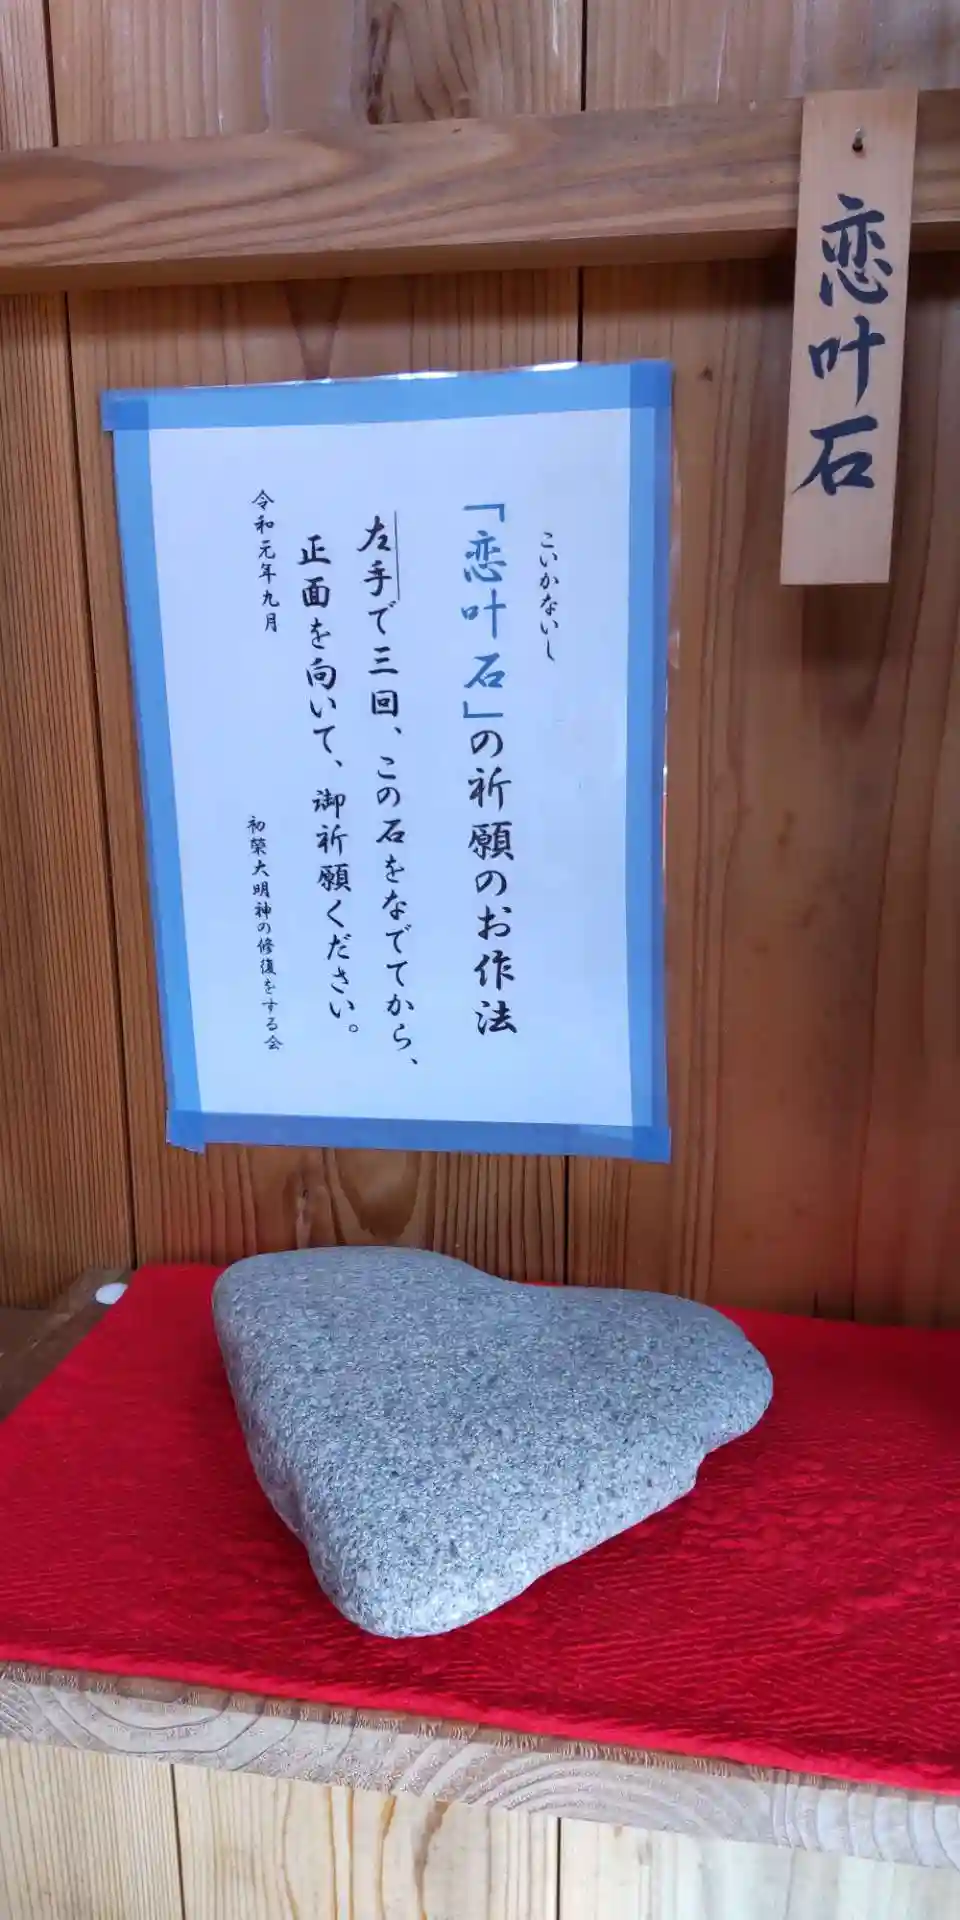 恋叶石
こいかないし
「恋叶石」の祈願のお作法
左手で三回、この石をなでてから、
正面を向いて、御祈願ください。
令和元年九月
初榮大明神の修復をする会